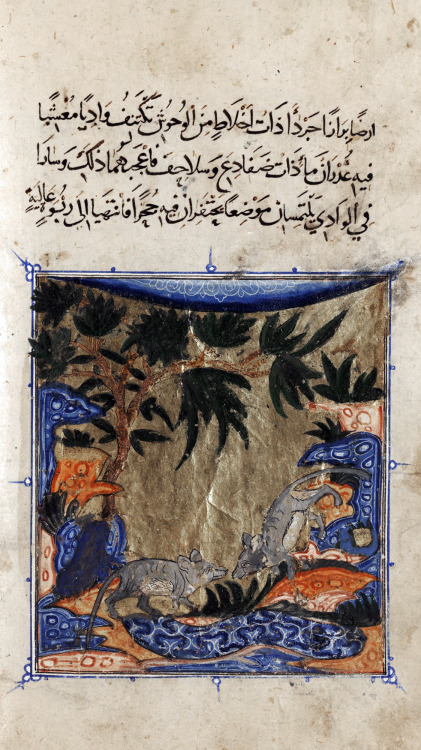 ارضًا برانا جردًا ذات اخلاطٍ من الوحوش تكتنف واديًا معشبًا
فيه غدران ماء ذات ضفادع وسلاحف فاعجبهما ذلك وسارا
في الوادي يلتمسان موضعًا يحتفران فيه جحرًا فانتهيا الى ربوةٍ عاليةٍ